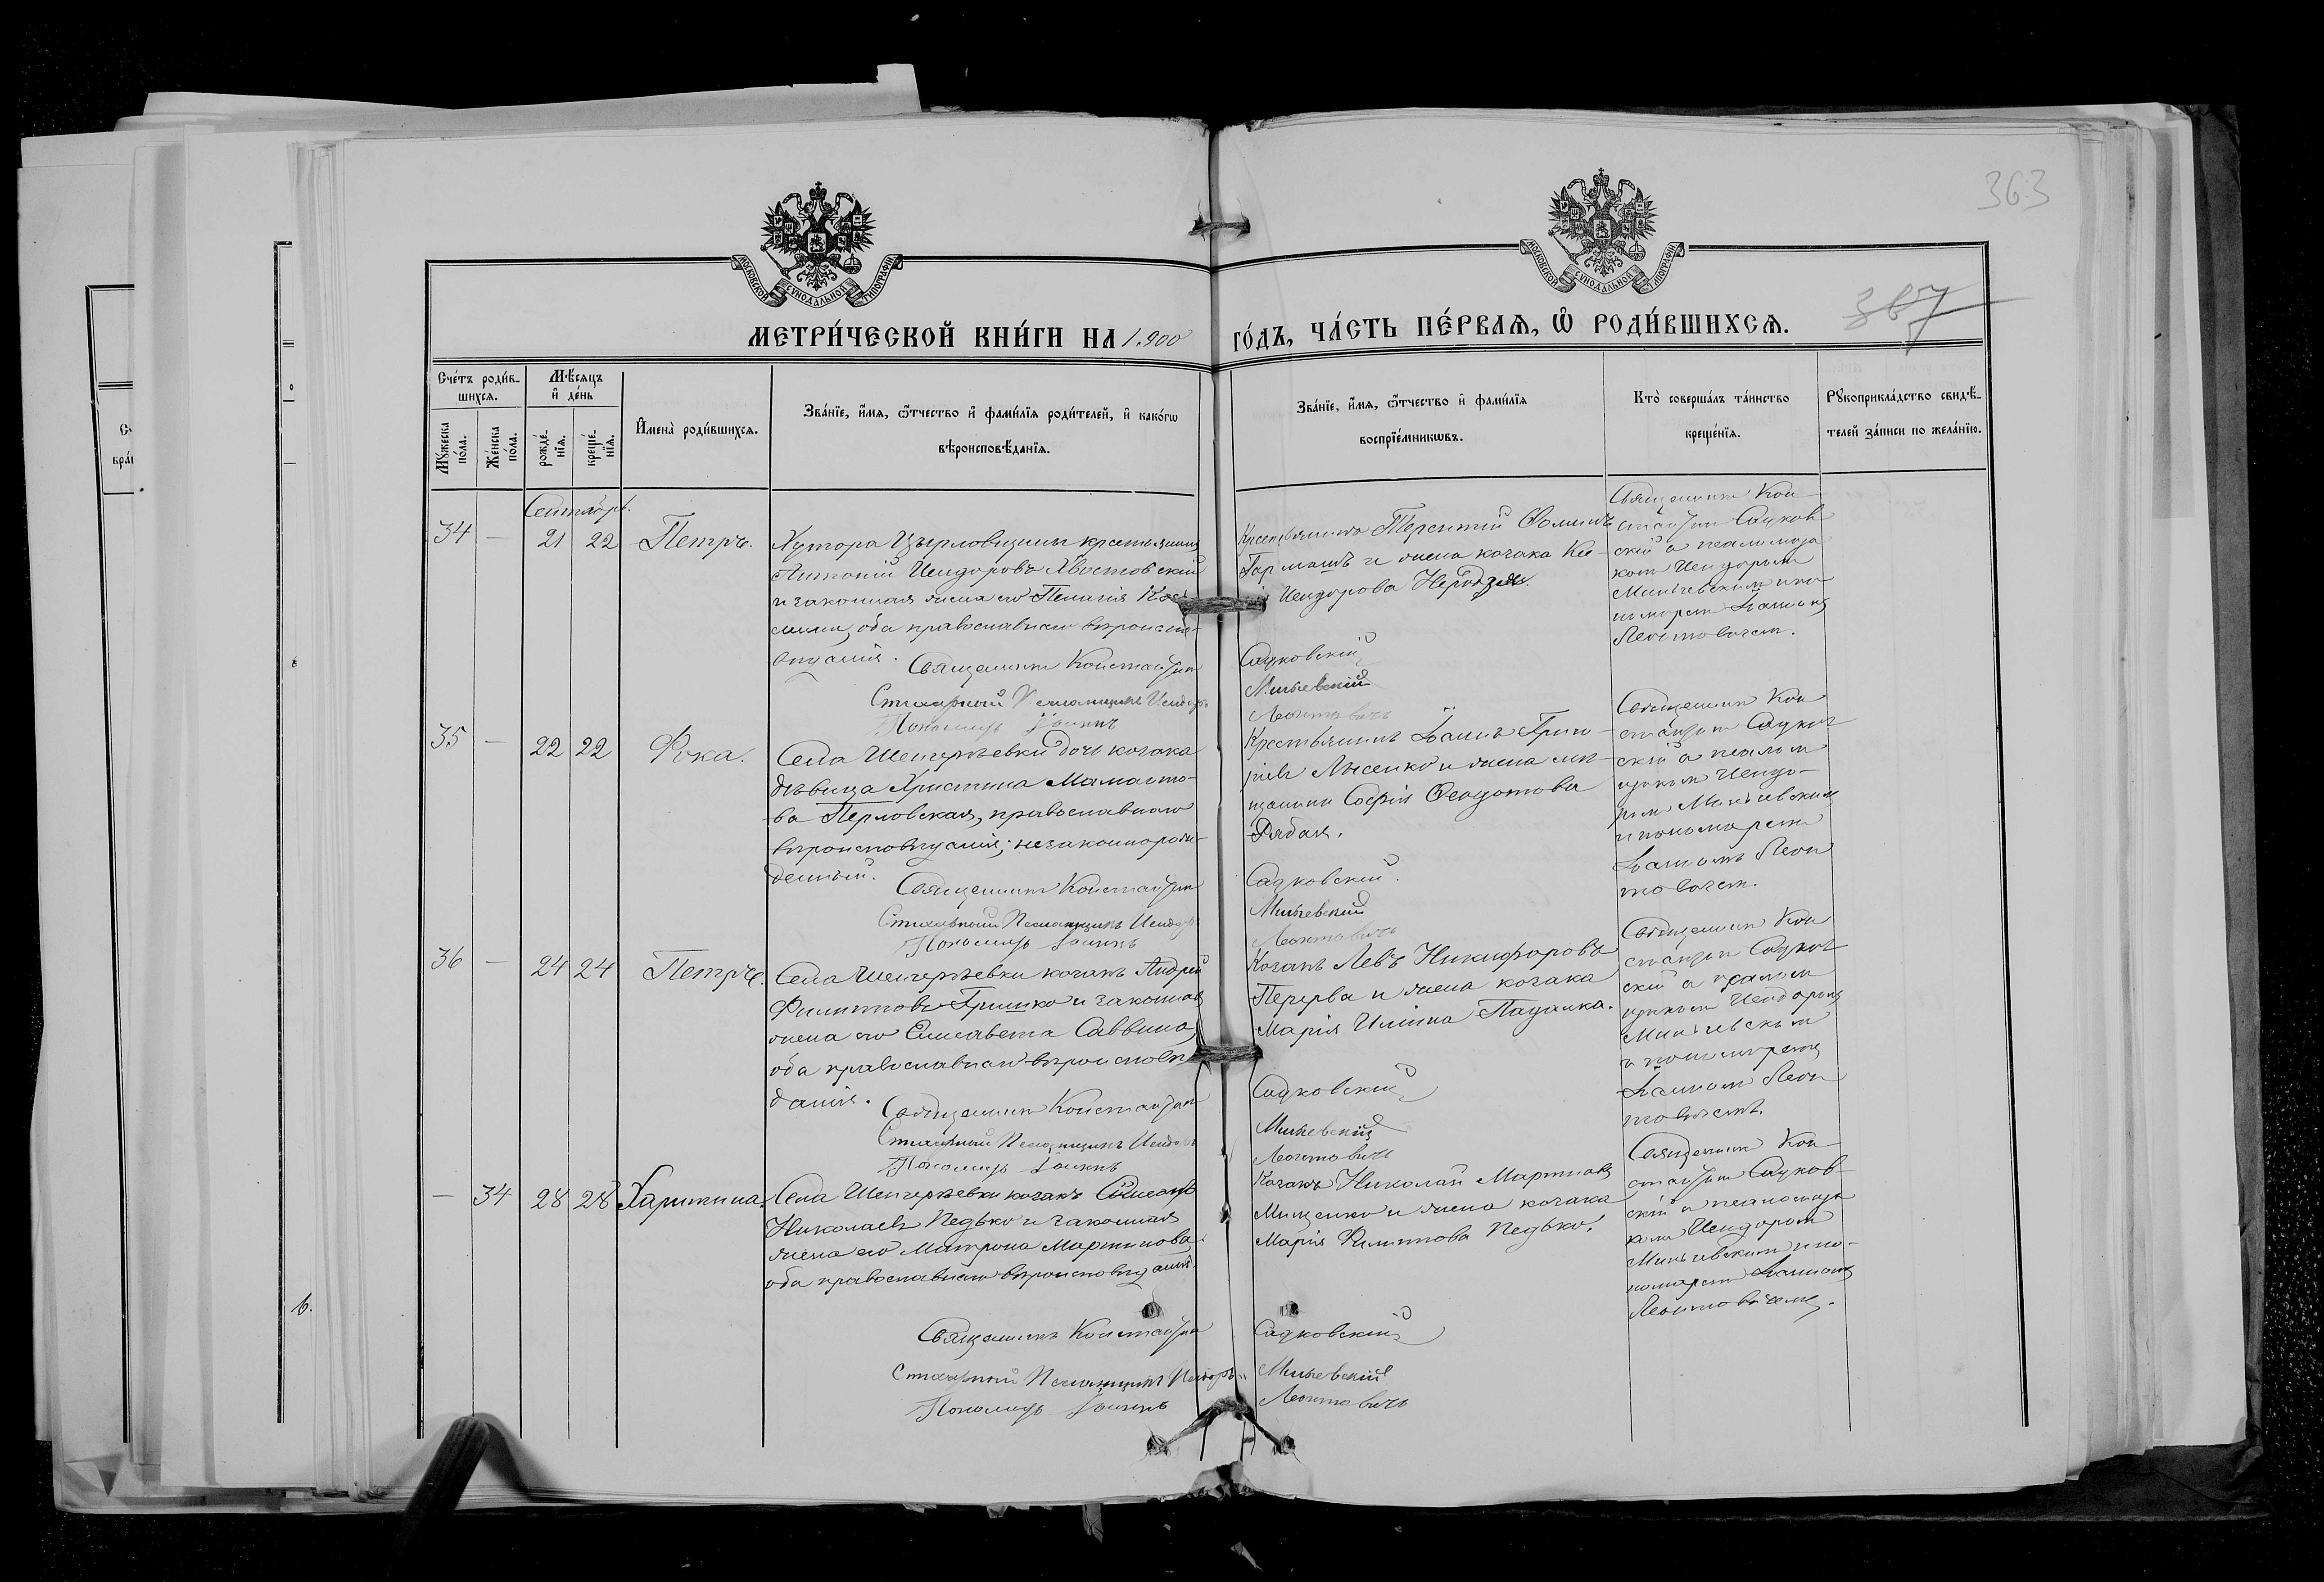 363
367
МОСКОВСКОЙ СУНОДАЛЬНОЙ ТИПОГРАФИИ
МОСКОВСКОЙ СУНОДАЛЬНОЙ ТИПОГРАФИИ
МЕТРИ́ЧЕСКОЙ КНИ́ГИ НА 1.900 ГО́ДЪ, ЧА́СТЬ ПЕ́РВАѦ, Ѿ РОДИ́ВШИХСѦ.
Сче́тъ роди́в-
шихсѧ.
Мꙋ́жеска по́ла.
Же́нска по́ла.
Мѣ́сяцъ
и҆ де́нь
рожде́-
нїѧ.
креще́-
нїѧ.
И҆мена̀ роди́вшихсѧ.
Зва́нїе, и҆́мѧ, ѻ҆́тчество и҆ фами́лїѧ роди́телей, и҆ како́гѡ
вѣроисповѣ́данїѧ.
Зва́нїе, и҆́мѧ, ѻ҆́тчество и҆ фами́лїѧ
воспрїе́мникѡвъ.
Кто̀ соверша́лъ та́инство
креще́нїѧ.
Рꙋкоприкла́дство свидѣ́-
телей за́писи по жела́нїю.
Сентябрь.
34 — 21 22 Петръ.
Хутора крестьянинъ
Антоній Исидоровъ Хвостовскій
и законная жена его Пелагія
оба православнаго вѣроиспо-
вѣданія. Священникъ Константинъ
Стихарный Псаломщикъ Исидоръ
Пономарь Іоаннъ
Крестьянинъ Терентій Ѳоминъ
Гармашъ и жена козака
Исидорова
Садковскій
Миньевскій
Леонтовичъ
Священникъ Кон-
стантинъ Садков-
скій съ псаломщи-
комъ Исидоромъ
Миньевскимъ и по-
номаремъ Іоанномъ
Леонтовичемъ.
35 — 22 22 Фока.
Села Шенгерѣевки дочь козака
дѣвица Христина Мамонто-
ва Перловская, православнаго
вѣроисповѣданія; незаконнорож-
денный. Священникъ Константинъ
Стихарный Псаломщикъ Исидоръ
Пономарь Іоаннъ
Крестьянинъ Іоаннъ Григо-
рьевъ Лысенко и жена мѣ-
щанина Софія Ѳеодотова
Рябая.
Садковскій.
Миньевскій
Леонтовичъ
Священникъ Кон-
стантинъ Садков-
скій съ псалом-
щикомъ Исидо-
ромъ Миньевскимъ
и пономаремъ
Іоанномъ Леон-
товичемъ.
36 — 24 24 Петръ.
Села Шенгерѣевки козакъ Андрей
Филипповъ Гришко и законная
жена его Елисавета Саввина,
оба православнаго вѣроисповѣ-
данія. Священникъ Константинъ
Стихарный Псаломщикъ Исидоръ
Пономарь Іоаннъ
Козакъ Левъ Никифоровъ
Перерва и жена козака
Марія Ильина Падалка.
Садковскій
Миньевскій
Леонтовичъ
Священникъ Кон-
стантинъ Садков-
скій съ псалом-
щикомъ Исидоромъ
Миньевскимъ
и пономаремъ
Іоанномъ Леон-
товичемъ.
— 34 28 28 Харитина.
Села Шенгерѣевки козакъ Симеонъ
Николаевъ Педько и законная
жена его Матрона Мартинова,
оба православнаго вѣроисповѣданія.
Священникъ Константинъ
Стихарный Псаломщикъ Исидоръ
Пономарь Іоаннъ
Козакъ Николай Мартиновъ
Мищенко и жена козака
Марія Филиппова Педько.
Садковскій
Миньевскій
Леонтовичъ
Священникъ Кон-
стантинъ Садков-
скій съ псаломщи-
комъ Исидоромъ
Миньевскимъ и по-
номаремъ Іоанномъ
Леонтовичемъ.